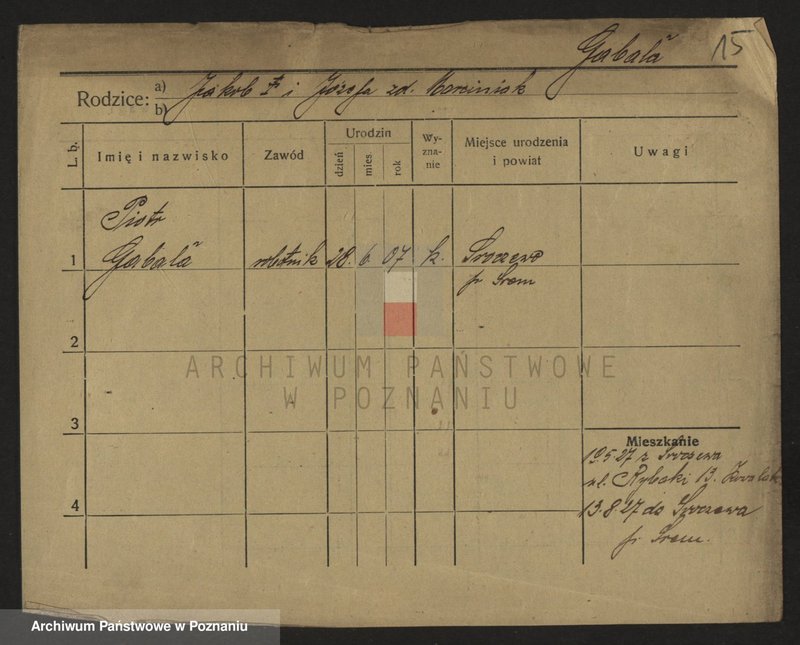 Gabała 15
Rodzice: a) Jakób † i Józefa zd. Marciniak
b)
L. b. Imię i nazwisko Zawód Urodzin dzień mies rok Wy-zna-nie Miejsce urodzenia i powiat Uwagi
Piotr
1 Gabała robotnik 28. 6. 07 k.
p. Śrem
2
ARCHIWUM PAŃSTWOWE
W POZNANIU
3
Mieszkanie
19.5.27 z
ul. Rybaki 13.
4
13.8.27 do
p. Śrem.
Archiwum Państwowe w Poznaniu